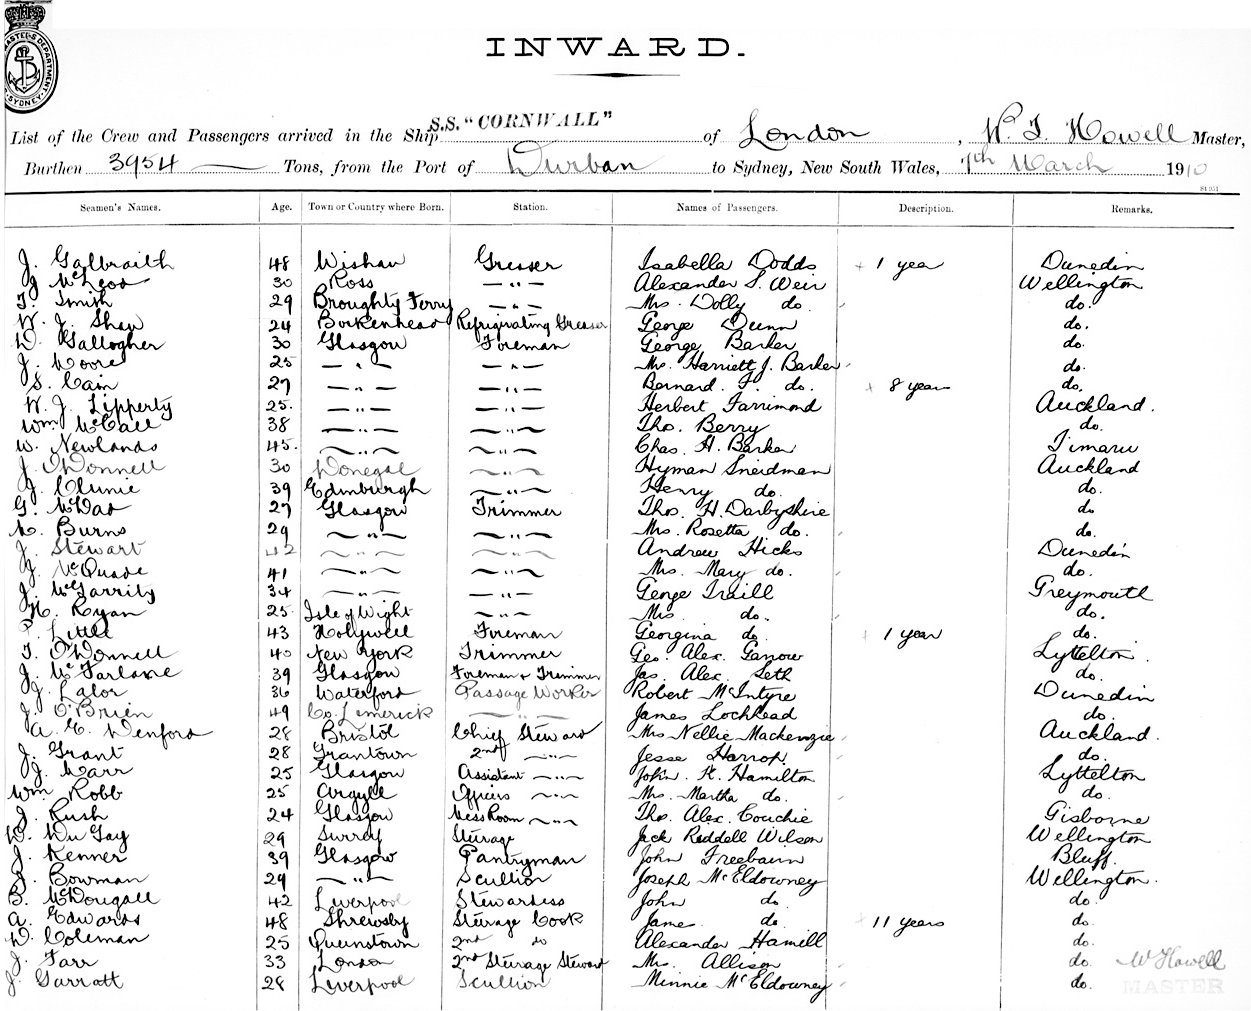 MASTER'S DEPARTMENT
SYDNEY
INWARD.
List of the Crew and Passengers arrived in the Ship S.S. "CORNWALL" of London, W. J. Howell Master,
Burthen 3954 Tons, from the Port of Durban to Sydney, New South Wales, 7th March 1910
Seamen's Names. Age. Town or Country where Born. Station. Names of Passengers. Description. Remarks.
J. Galbraith 48 Wishaw Greaser Isabella Dodds 1 year Dunedin
J. McLeod 30 Ross — " — Alexander S. Weir Wellington
T. Smith 29 Broughty Ferry — " — Mrs. Dolly do. do.
W. J. Shaw 24 Birkenhead Refrigirating Greaser George Dunn do.
D. Gallogher 30 Glasgow Foreman George Barker do.
J. Moore 25 — " — — " — Mrs. Harriett J. Barker do.
S. Cain 27 — " — — " — Bernard F. do. 8 years do.
W. J. Lipperty 25. — " — — " — Herbert Farrimond Auckland.
Wm McCall 38 — " — — " — Tho. Berry do.
W. Newlands 45. — " — — " — Chas. H. Barker Timaru
J. O'Donnell 30 Donegal — " — Hyman Sneidman Auckland
J. Clunie 39 Edinburgh — " — Henry do. do.
G. 27 Glasgow Trimmer Tho. H. Darbyshire do
Burns 29 — " — — " — Mrs. Rosetta do. do.
J. Stewart 42 — " — — " — Andrew Hicks Dunedin
J. McQuade 41 — " — — " — Mrs. Mary do. do.
J. McGarrity 34 — " — — " — George Traill Greymouth
H. Ryan 25 Isle of Wight — " — Mrs do. do.
P. Little 43 Holywell Foreman Georgina do. 1 year do.
T. O'Donnell 40 New York Trimmer Geo. Alex. Lyttelton.
J. McFarlane 39 Glasgow Foreman & Trimmer Jas. Alex. Seth do.
J. Lalor 36 Waterford Passage Worker Robert McIntyre Dunedin
J. O'Brien 49 Co. Limerick — " — James Lochhead do.
A. E. Wenford 28 Bristol Chief Steward Mrs Nellie Mackenzie Auckland.
J. Grant 28 Grantown 2nd — " — Jesse Harrop. do.
J. Marr 25 Glasgow Assistant — " — John K. Hamilton Lyttelton
Wm Robb 25 Argyle Officers — " — Mrs. Martha do. do.
J. Rush 24 Glasgow Mess Room — " — Tho. Alex. Couchie Gisborne
29 Surrey Sturage Jack Reddell Wilson Wellington
J. Kenner 39 Glasgow Pantryman John Freebairn Bluff.
J. Bowman 29 — " — Scullion Joseph McEldowney Wellington.
B. McDougall 42 Liverpool Stewardess John do. do.
A. Edwards 48 Shrewsby Sturage Cook James do. 11 years do.
D. Coleman 25 Queenstown 2nd do Alexander Hamill do.
J. Farr 33 London 2nd Sturage Steward Mrs. Allison do. W Howell
J. Garratt 28 Liverpool Scullion Minnie McEldowney do. MASTER